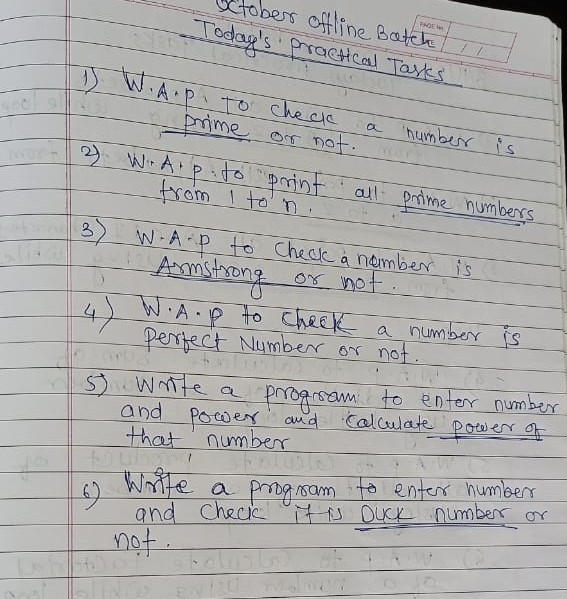 October offline Batch
PAGE No.
/ /
Today's practical Tasks
1) W.A.P. To check a number is
prime or not.
2) W.A.P. to print all prime numbers
from 1 to n.
3) W.A.P to check a number is
Armstrong or not.
4) W.A.P to check a number is
Perfect Number or not.
5) Write a program to enter number
and power and calculate power of
that number
6) Write a program to enter number
and check it is Duck number or
not.